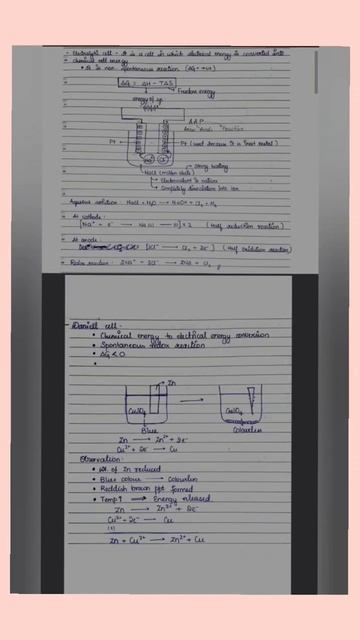 - Electrolytic cell - It is a cell in which electrical energy is converted into
- chemical cell energy
• It is non spontaneous reaction (ΔG = +ve)
ΔG = ΔH - TΔS
Freedom energy
energy of sys
A A P
Anion Anode Positive
Pt
Pt (used because it is inert metal)
NaCl (molten state)
Strong heating
Electrovalent in nature
Completely dissociation into ion
Aqueous solution NaCl + H2O → NaOH + Cl2 + H2
At cathode:
[Na+ + e- → Na (s) — (i)] × 2 (Half reduction reaction)
At anode:
[2Cl- → Cl2 + 2e-] (Half oxidation reaction)
Redox reaction: 2Na+ + 2Cl- → 2Na + Cl2
- Daniell cell -
• Chemical energy to electrical energy conversion
• Spontaneous redox reaction
• ΔG < 0
•
Zn
CuSO4
CuSO4
Blue
Colourless
Zn → Zn2+ + 2e-
Cu2+ + 2e- → Cu
Observation-
• Wt. of Zn reduced
• Blue colour → Colourless
• Reddish brown ppt formed
• Temp↑ → Energy released
Zn → Zn2+ + 2e-
Cu2+ + 2e- → Cu
Zn + Cu2+ → Zn2+ + Cu